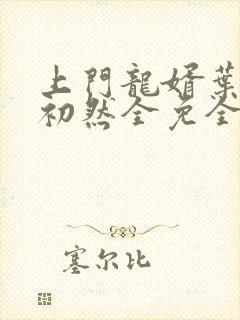 上門龍婿葉
初然全免全
塞尔比